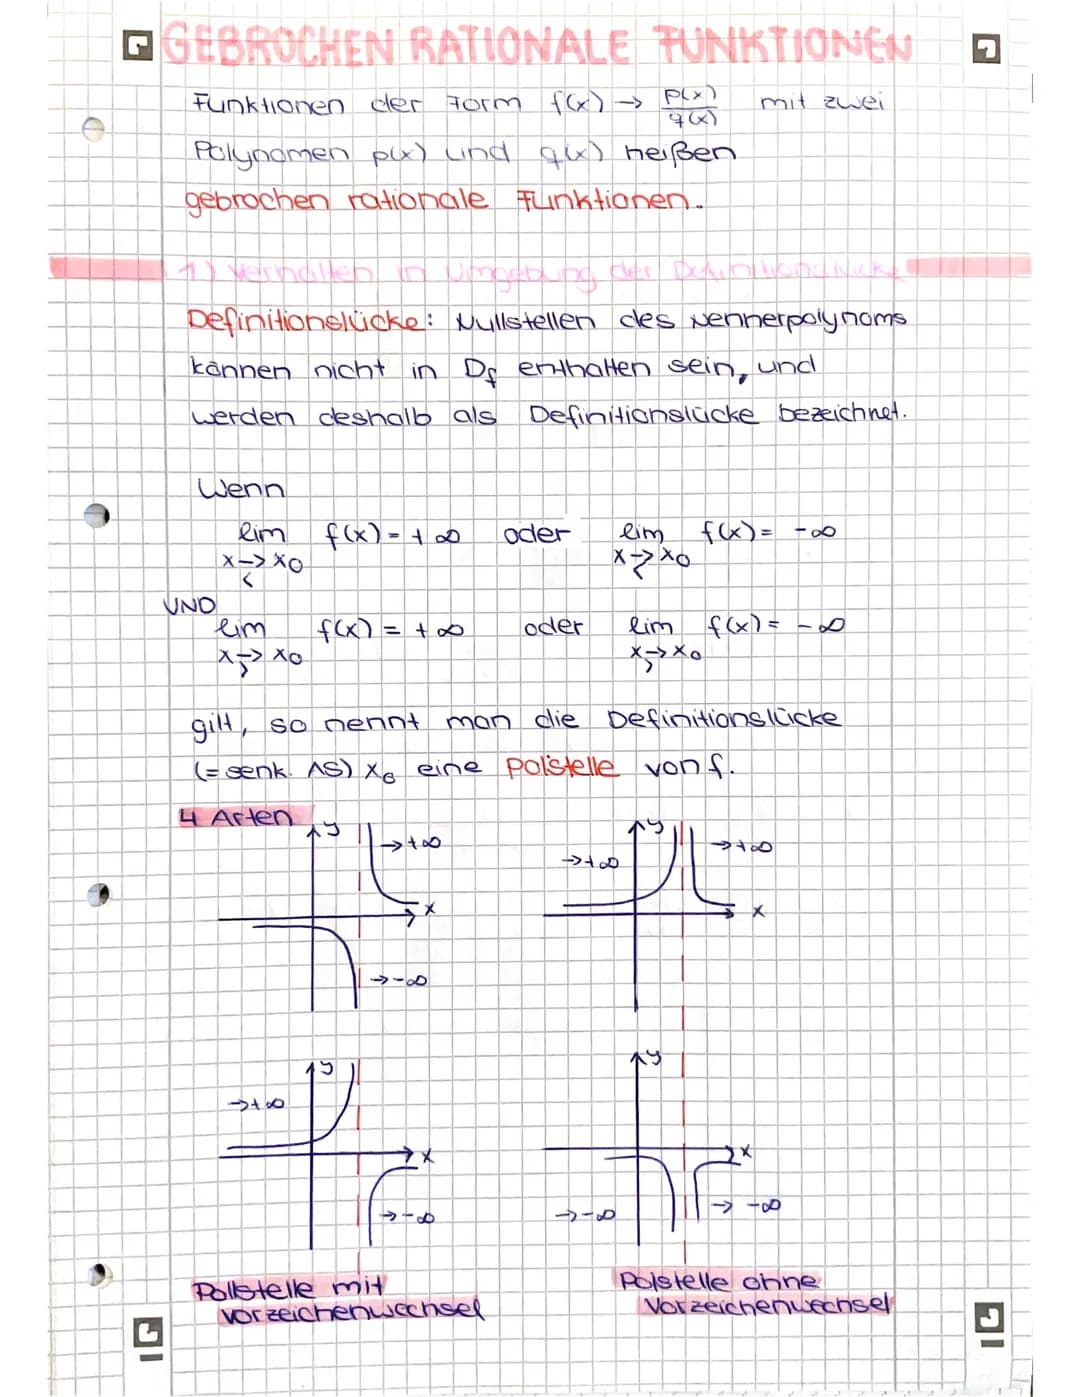 GEBROCHEN RATIONALE FUNKTIONEN
Funktionen der Form f(x) → p(x)/q(x) mit zwei
Polynomen p(x) und q(x) heißen
gebrochen rationale Funktionen.
1) Verhalten in Umgebung der Definitionslücke
Definitionslücke: Nullstellen des Nennerpolynoms
können nicht in Df enthalten sein, und
werden deshalb als Definitionslücke bezeichnet.
Wenn
lim f(x) = +∞ oder lim f(x) = -∞
x -> x0 x -> x0
< <
UND
lim f(x) = +∞ oder lim f(x) = -∞
x -> x0 x -> x0
> >
gilt, so nennt man die Definitionslücke
(= senk. AS) x0 eine Polstelle von f.
4 Arten
y →+∞ y →+∞
→+∞
x x
→-∞
y y
→+∞
x x
→-∞ →-∞ → -∞
Pollstelle mit Polstelle ohne
Vorzeichenwechsel Vorzeichenwechsel